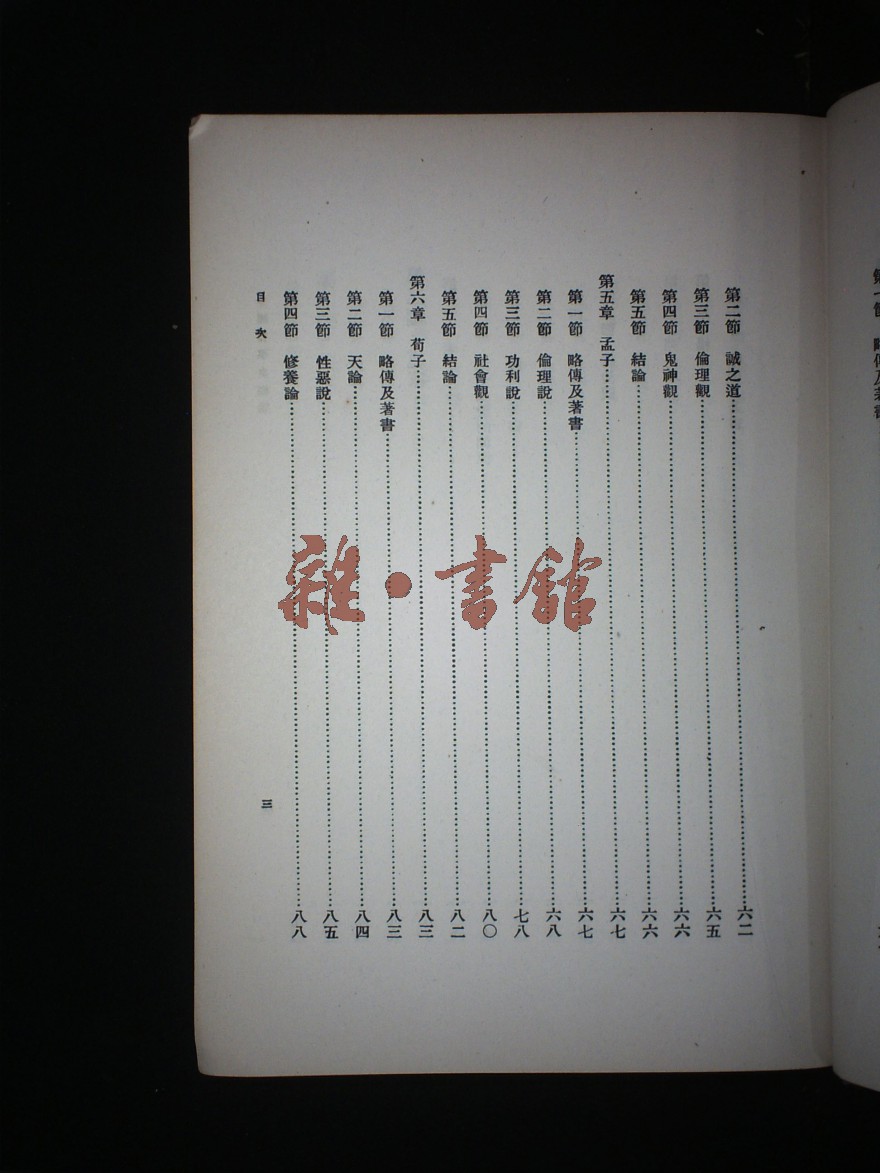 第二節 誠之道……六二
第三節 倫理觀……六五
第四節 鬼神觀……六六
第五節 結論……六六
第五章 孟子……六七
第一節 略傳及著書……六七
第二節 倫理說……六八
第三節 功利說……七八
第四節 社會觀……八〇
第五節 結論……八二
第六章 荀子……八三
第一節 略傳及著書……八三
第二節 天論……八四
第三節 性惡說……八五
第四節 修養論……八八
目次
三
雜·書館